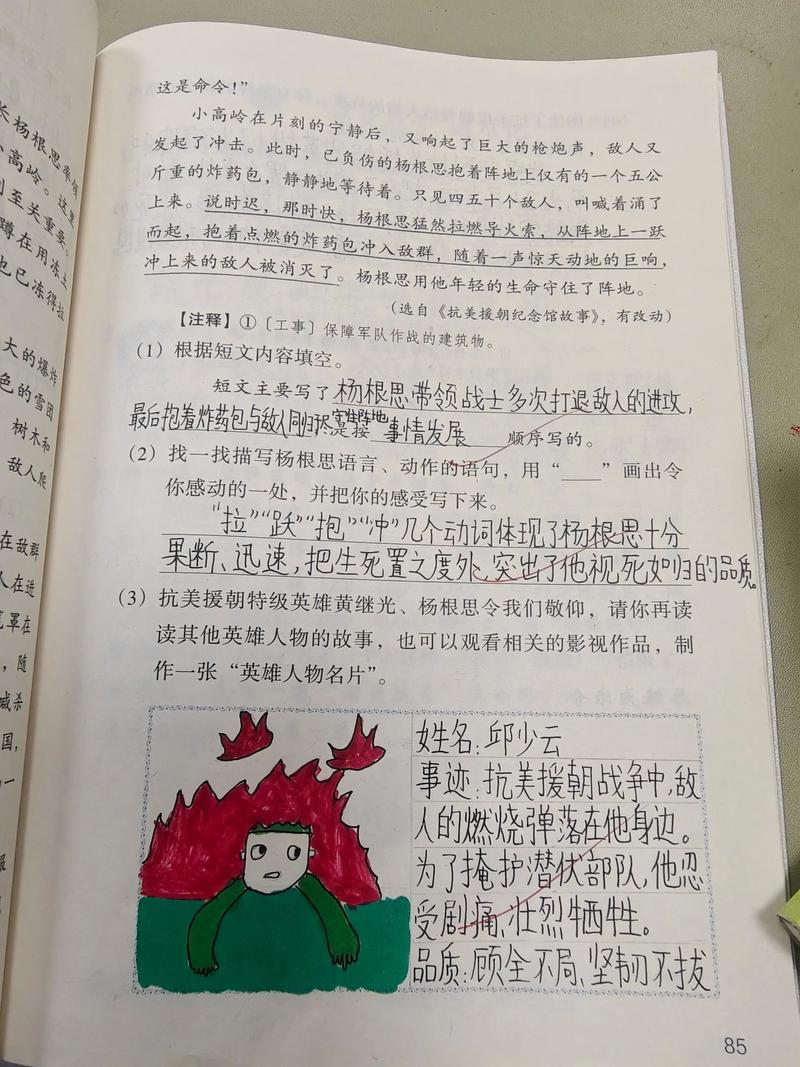 这是命令！”
小高岭在片刻的宁静后，又响起了巨大的枪炮声，敌人又
发起了冲击。此时，已负伤的杨根思抱着阵地上仅有的一个五公
斤重的炸药包，静静地等待着。只见四五十个敌人，叫喊着涌了
上来。说时迟，那时快，杨根思猛然拉燃导火索，从阵地上一跃
而起，抱着点燃的炸药包冲入敌群，随着一声惊天动地的巨响，
冲上来的敌人被消灭了。杨根思用他年轻的生命守住了阵地。
（选自《抗美援朝纪念馆故事》，有改动）
【注释】①〔工事〕保障军队作战的建筑物。
（1）根据短文内容填空。
短文主要写了杨根思带领战士多次打退敌人的进攻，
最后抱着炸药包与敌人同归于尽守住阵地是按 事情发展 顺序写的。
（2）找一找描写杨根思语言、动作的语句，用“____”画出令
你感动的一处，并把你的感受写下来。
“拉”“跃”“抱”“冲”几个动词体现了杨根思十分
果断、迅速，把生死置之度外，突出了他视死如归的品质
（3）抗美援朝特级英雄黄继光、杨根思令我们敬仰，请你再读
读其他英雄人物的故事，也可以观看相关的影视作品，制
作一张“英雄人物名片”。
姓名：邱少云
事迹：抗美援朝战争中，敌
人的燃烧弹落在他身边。
为了掩护潜伏部队，他忍
受剧痛，壮烈牺牲。
品质：顾全不局、坚韧不拔
85
长杨根思率领
小高岭。这里
至关重要。
蹲在用冻土
也已冻得拉
大的爆炸
色的雪团
树木和
敌人爬
在敌群
人在进
笼罩在
，随
喊杀
国，
一